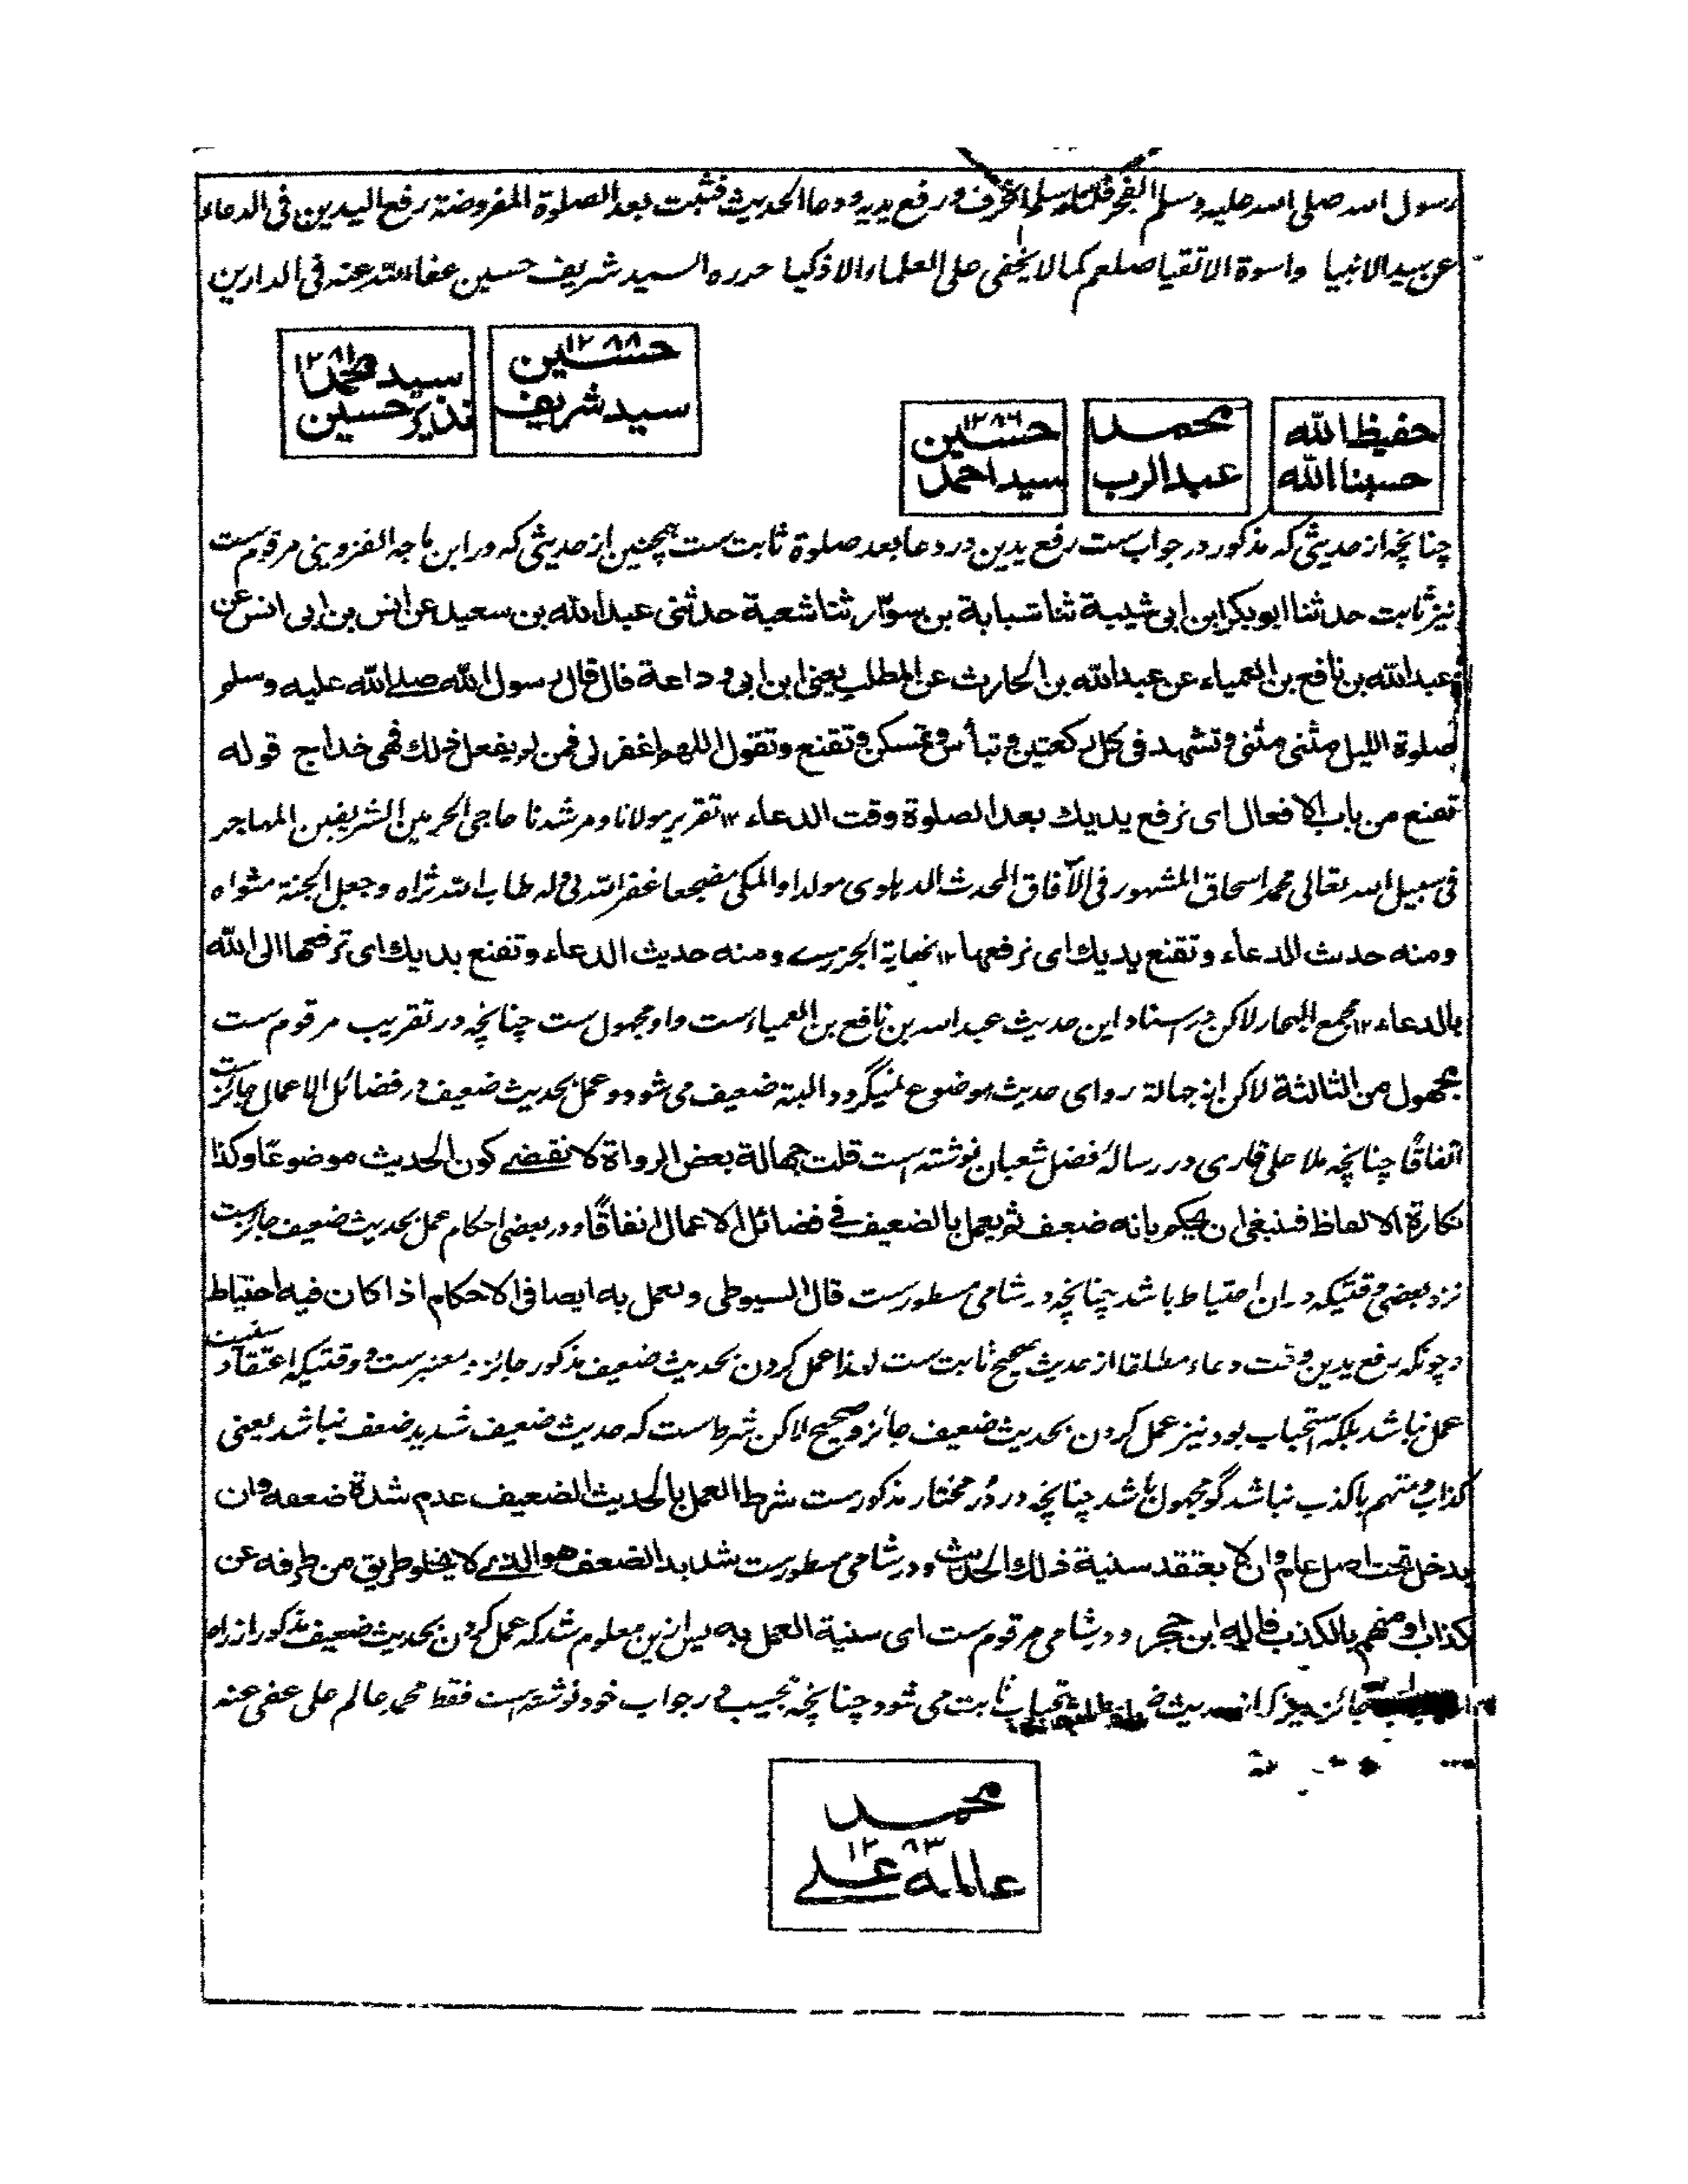 رسول الله صلی الله علیه وسلم الفجر فلما سلم انحرف ورفع یدیه ودعا الحدیث فثبت بعد الصلوة المفروضة رفع الیدین فی الدعاء
عن سید الانبیا واسوة الاتقیا صلعم کما لا یخفی علی العلماء الاذکیا حرره السید شریف حسین عفا الله عنه فی الدارین
سید محمد نذیر حسین ١٢٨١
حسین ١٢٨٨ سید شریف
حسین ١٢٨٦ سید احمد
محمد عبد الرب
حفیظ الله حسبنا الله
چنانچه از حدیثی که مذکور در جواب ست رفع یدین در دعا بعد صلوة ثابت ست همچنین از حدیثی که در ابن ماجه القزوینی مرقوم ست
نیز ثابت حدثنا ابو بکر ابن ابی شیبة ثنا شبابة بن سوّار ثنا شعبة حدثنی عبد الله بن سعید عن انس بن ابی انس عن
عبد الله بن نافع بن العمیاء عن عبد الله بن الحارث عن المطلب یعنی ابن ابی وداعة قال قال رسول الله صلے الله علیه وسلم
صلوة اللیل مثنی مثنی وتشهد فی کل رکعتین وتبأس وتمسکن وتقنع وتقول اللهم اغفر لی فمن لم یفعل ذلك فهی خداج قوله
تقنع من باب الافعال ای ترفع یدیك بعد الصلوة وقت الدعاء ١٢ تقریر مولانا ومرشدنا حاجی الحرمین الشریفین المهاجر
فی سبیل الله تعالی محمد اسحاق المشهور فی الآفاق المحدث الدهلوی مولدا والمکی مضجعا غفر الله ذنوبه طاب الله ثراه وجعل الجنة مثواه
ومنه حدیث الدعاء وتقنع یدیك ای ترفعها ١٢ نهایة الجزرے ومنه حدیث الدعاء وتقنع یدیك ای ترفعها الی الله
بالدعاء ١٢ مجمع البحار لاکن در اسناد این حدیث عبد الله بن نافع بن العمیاء ست واو مجهول ست چنانچه در تقریب مرقوم ست
مجهول من الثالثة لاکن از جهالة روای حدیث موضوع نمیگردد البته ضعیف می شود وعمل بحدیث ضعیف در فضائل الاعمال جائز ست
اتفاقًا چنانچه ملا علی قاری در رسالۂ فضل شعبان نوشته است قلت جهالة بعض الرواة لا تقتضے کون الحدیث موضوعًا وکذا
نکارة الالفاظ فینبغی ان یحکم بانه ضعیف ثم یعمل بالضعیف فے فضائل الاعمال اتفاقًا ودر بعضی احکام عمل بحدیث ضعیف جائز ست
نزد بعضی وقتیکه در ان احتیاط باشد چنانچه در شامی مسطورست قال السیوطی ویعمل به ایضا فی الاحکام اذا کان فیه احتیاط
وچونکه رفع یدین وقت دعاء مطلقا از حدیث صحیح ثابت ست لهذا عمل کردن بحدیث ضعیف مذکور جائز ومعتبرست ووقتیکه اعتقاد سنیت
عمل نباشد بلکه استحباب بود نیز عمل کردن بحدیث ضعیف جائز وصحیح لاکن شرط است که حدیث ضعیف شدید ضعف نباشد یعنی
کذاب ومتهم باکذب نباشد گو مجهول باشد چنانچه در دُر مختار مذکورست شرط العمل بالحدیث الضعیف عدم شدة ضعفه وان
یدخل تحت اصل عام وان لا یعتقد سنیة ذلك الحدیث ودر شامی مسطورست شدید الضعف هو الذے لا یخلو طریق من طرقه عن
کذاب او متهم بالکذب قاله ابن حجر ودر شامی مرقوم ست ای سنیة العمل به پس ازین معلوم شد که عمل کردن بحدیث ضعیف مذکور از راه
جائز چرا که از حدیث استحباب ثابت می شود چنانچه مجیب در جواب خود نوشته ست فقط محمد عالم علی عفی عنه
محمد
١٢٨٣
عالم علے